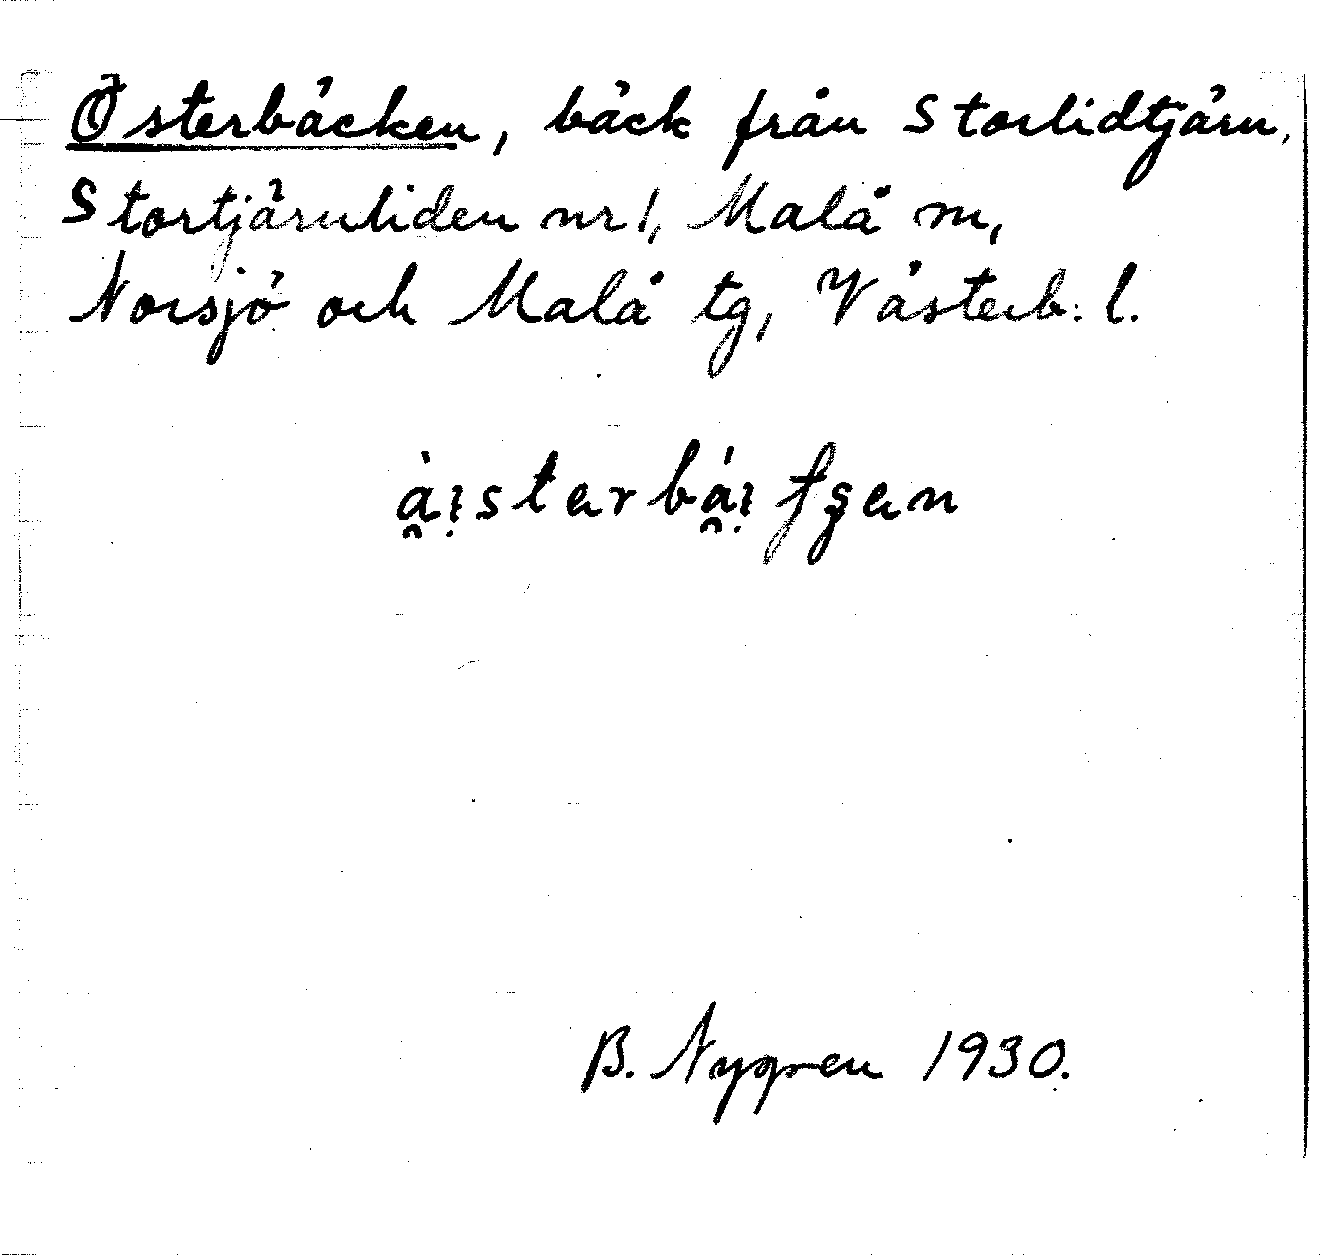 Österbäcken, bäck från Storlidtjärn,
Stortjärnliden nr 1, Malå sn,
Norsjö och Malå tg, Västerb. l.
B. Nygren 1930.